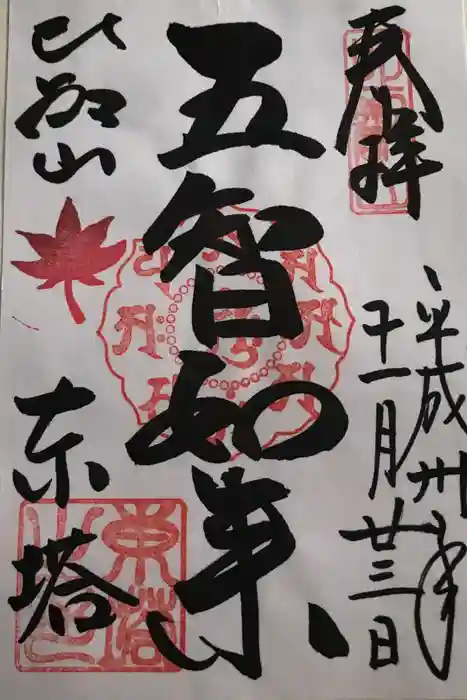 奉拝
平成卅年
十一月廿三日
五智如来
比叡山
東塔